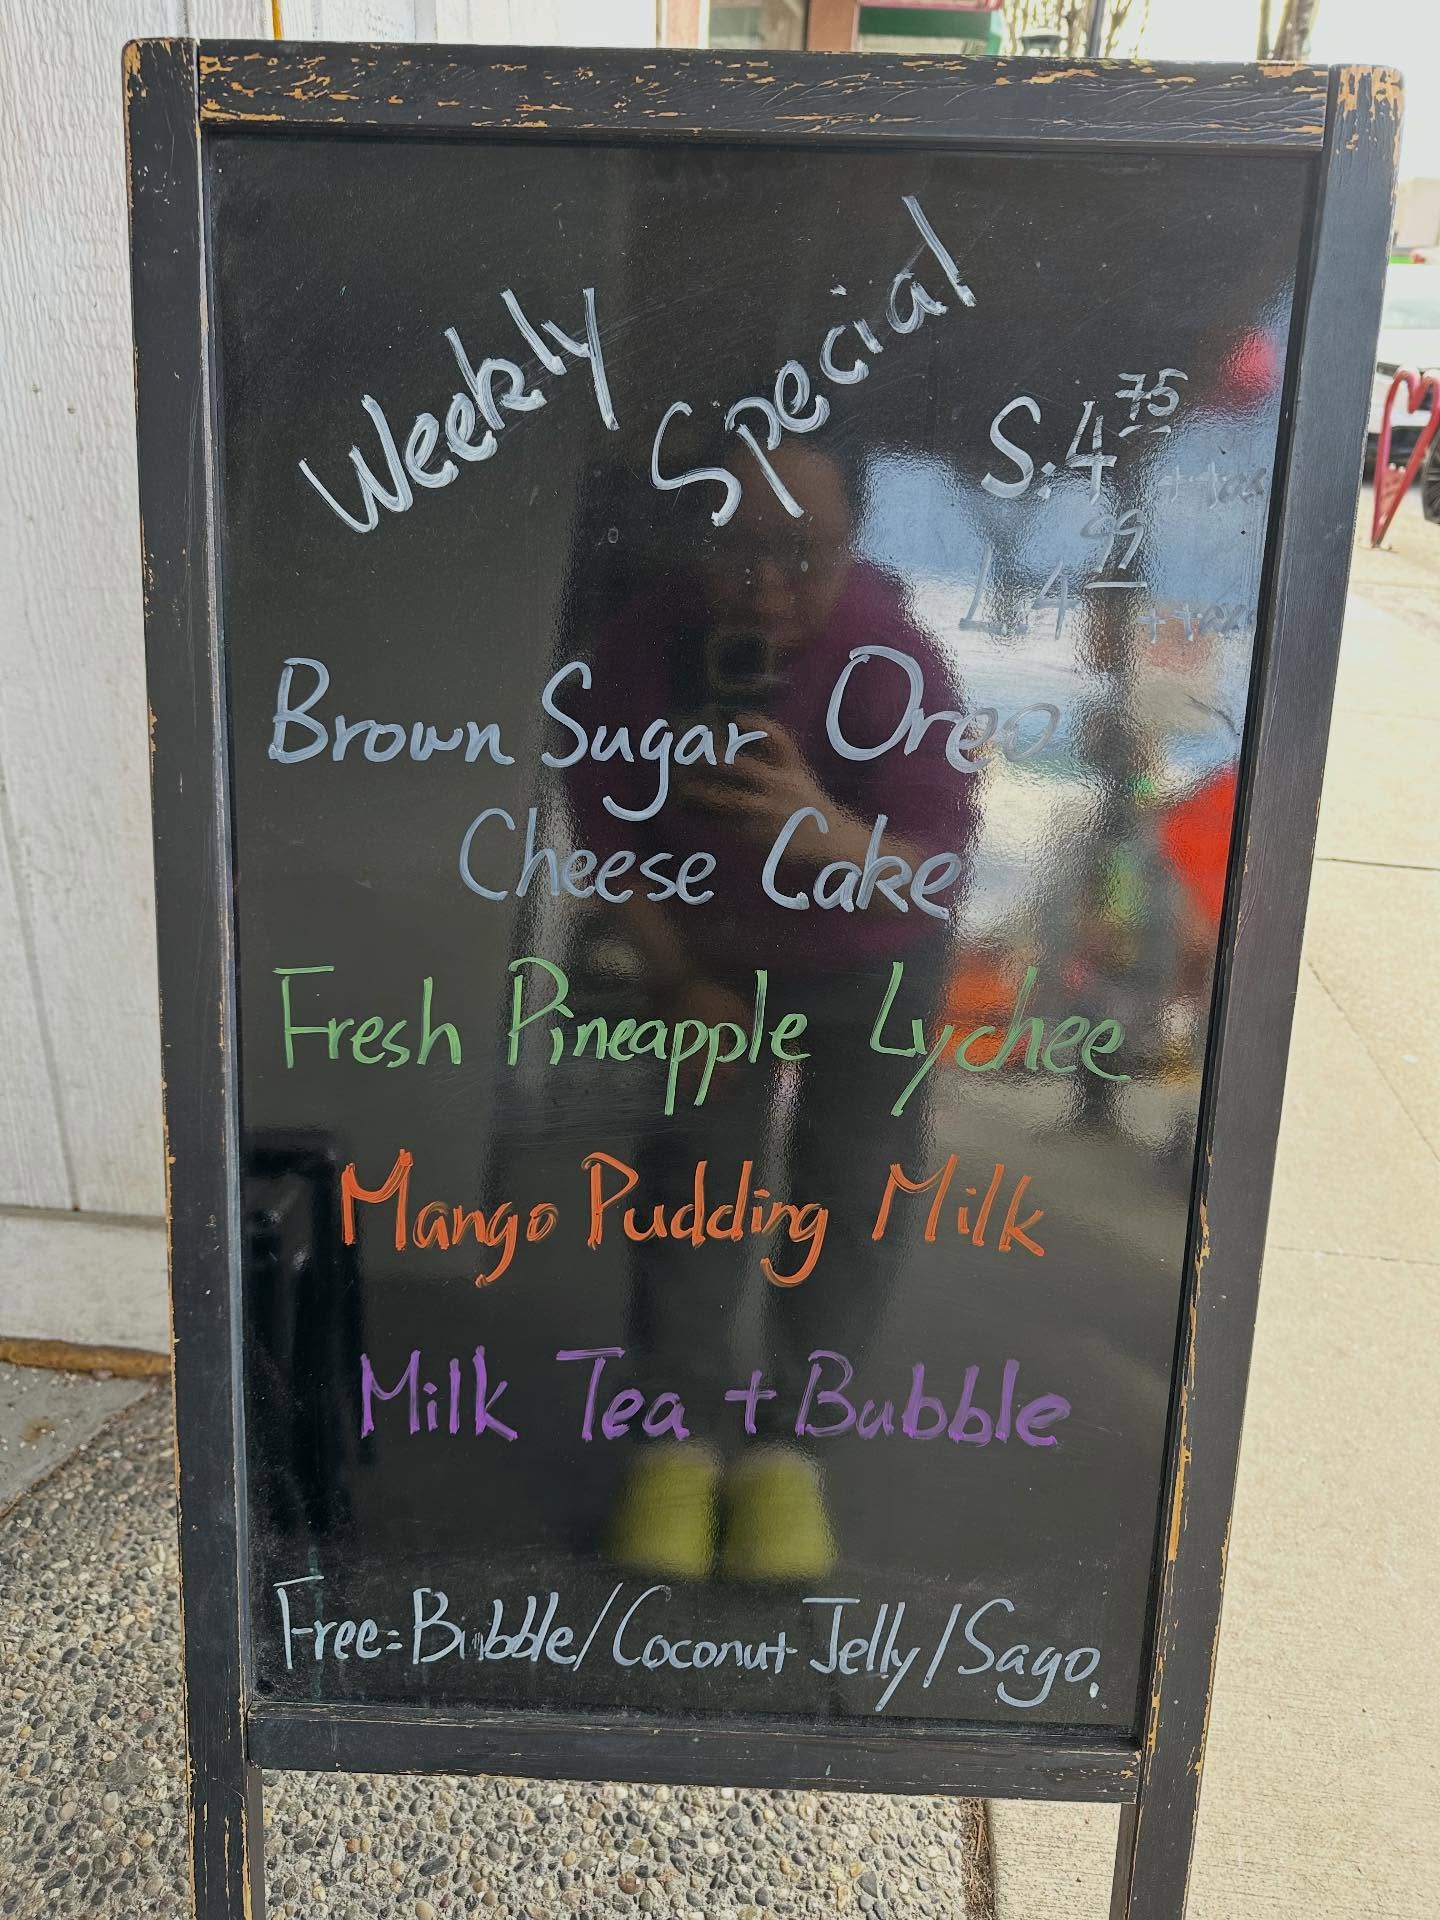 Weekly Special
S. 4.75 + tax
L. 4.99 + tax
Brown Sugar Oreo
Cheese Cake
Fresh Pineapple Lychee
Mango Pudding Milk
Milk Tea + Bubble
Free=Bubble/Coconut Jelly/Sago.